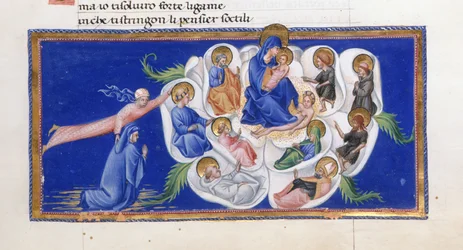 ma io tisoluiro forte ligame
inche tistringon li pensier soctili